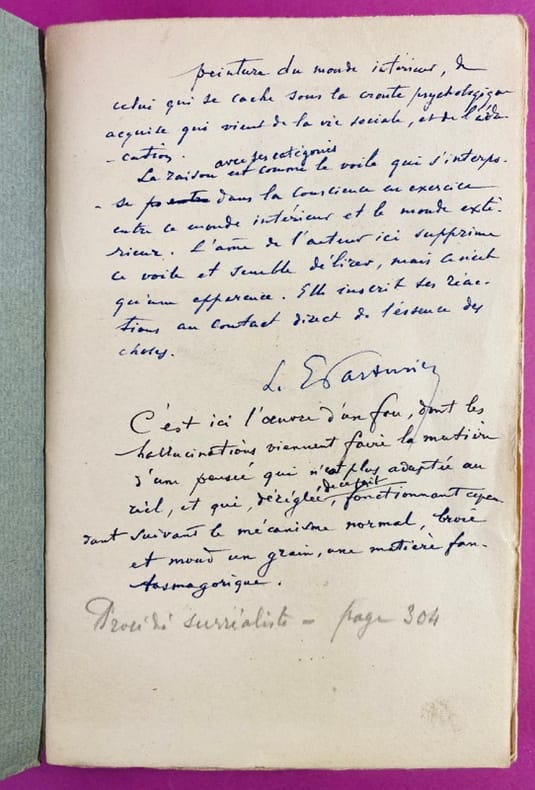 peinture du monde intérieur, de
celui qui se cache sous la croute psychologique
acquise qui vient de la vie sociale, et de l'édu
-cation.
avec ses catégories
La raison est comme le voile qui s'interpo-
-se dans la conscience en exercice
entre ce monde intérieur et le monde exté-
rieur. L'âme de l'auteur ici supprime
ce voile et semble délirer, mais ce n'est
qu'une apparence. Elle inscrit ses réac-
tions au contact direct de l'éssence des
choses.
L. E
C'est ici l'œuvre d'un fou, dont les
hallucinations viennent faire la matière
d'une pensée qui n'est plus adaptée au
réel, et qui, déréglée, fonctionnant cepen
dant suivant le mécanisme normal, broie
et moud un grain, une matière fan-
tasmagorique.
Procédé surréaliste - page 304